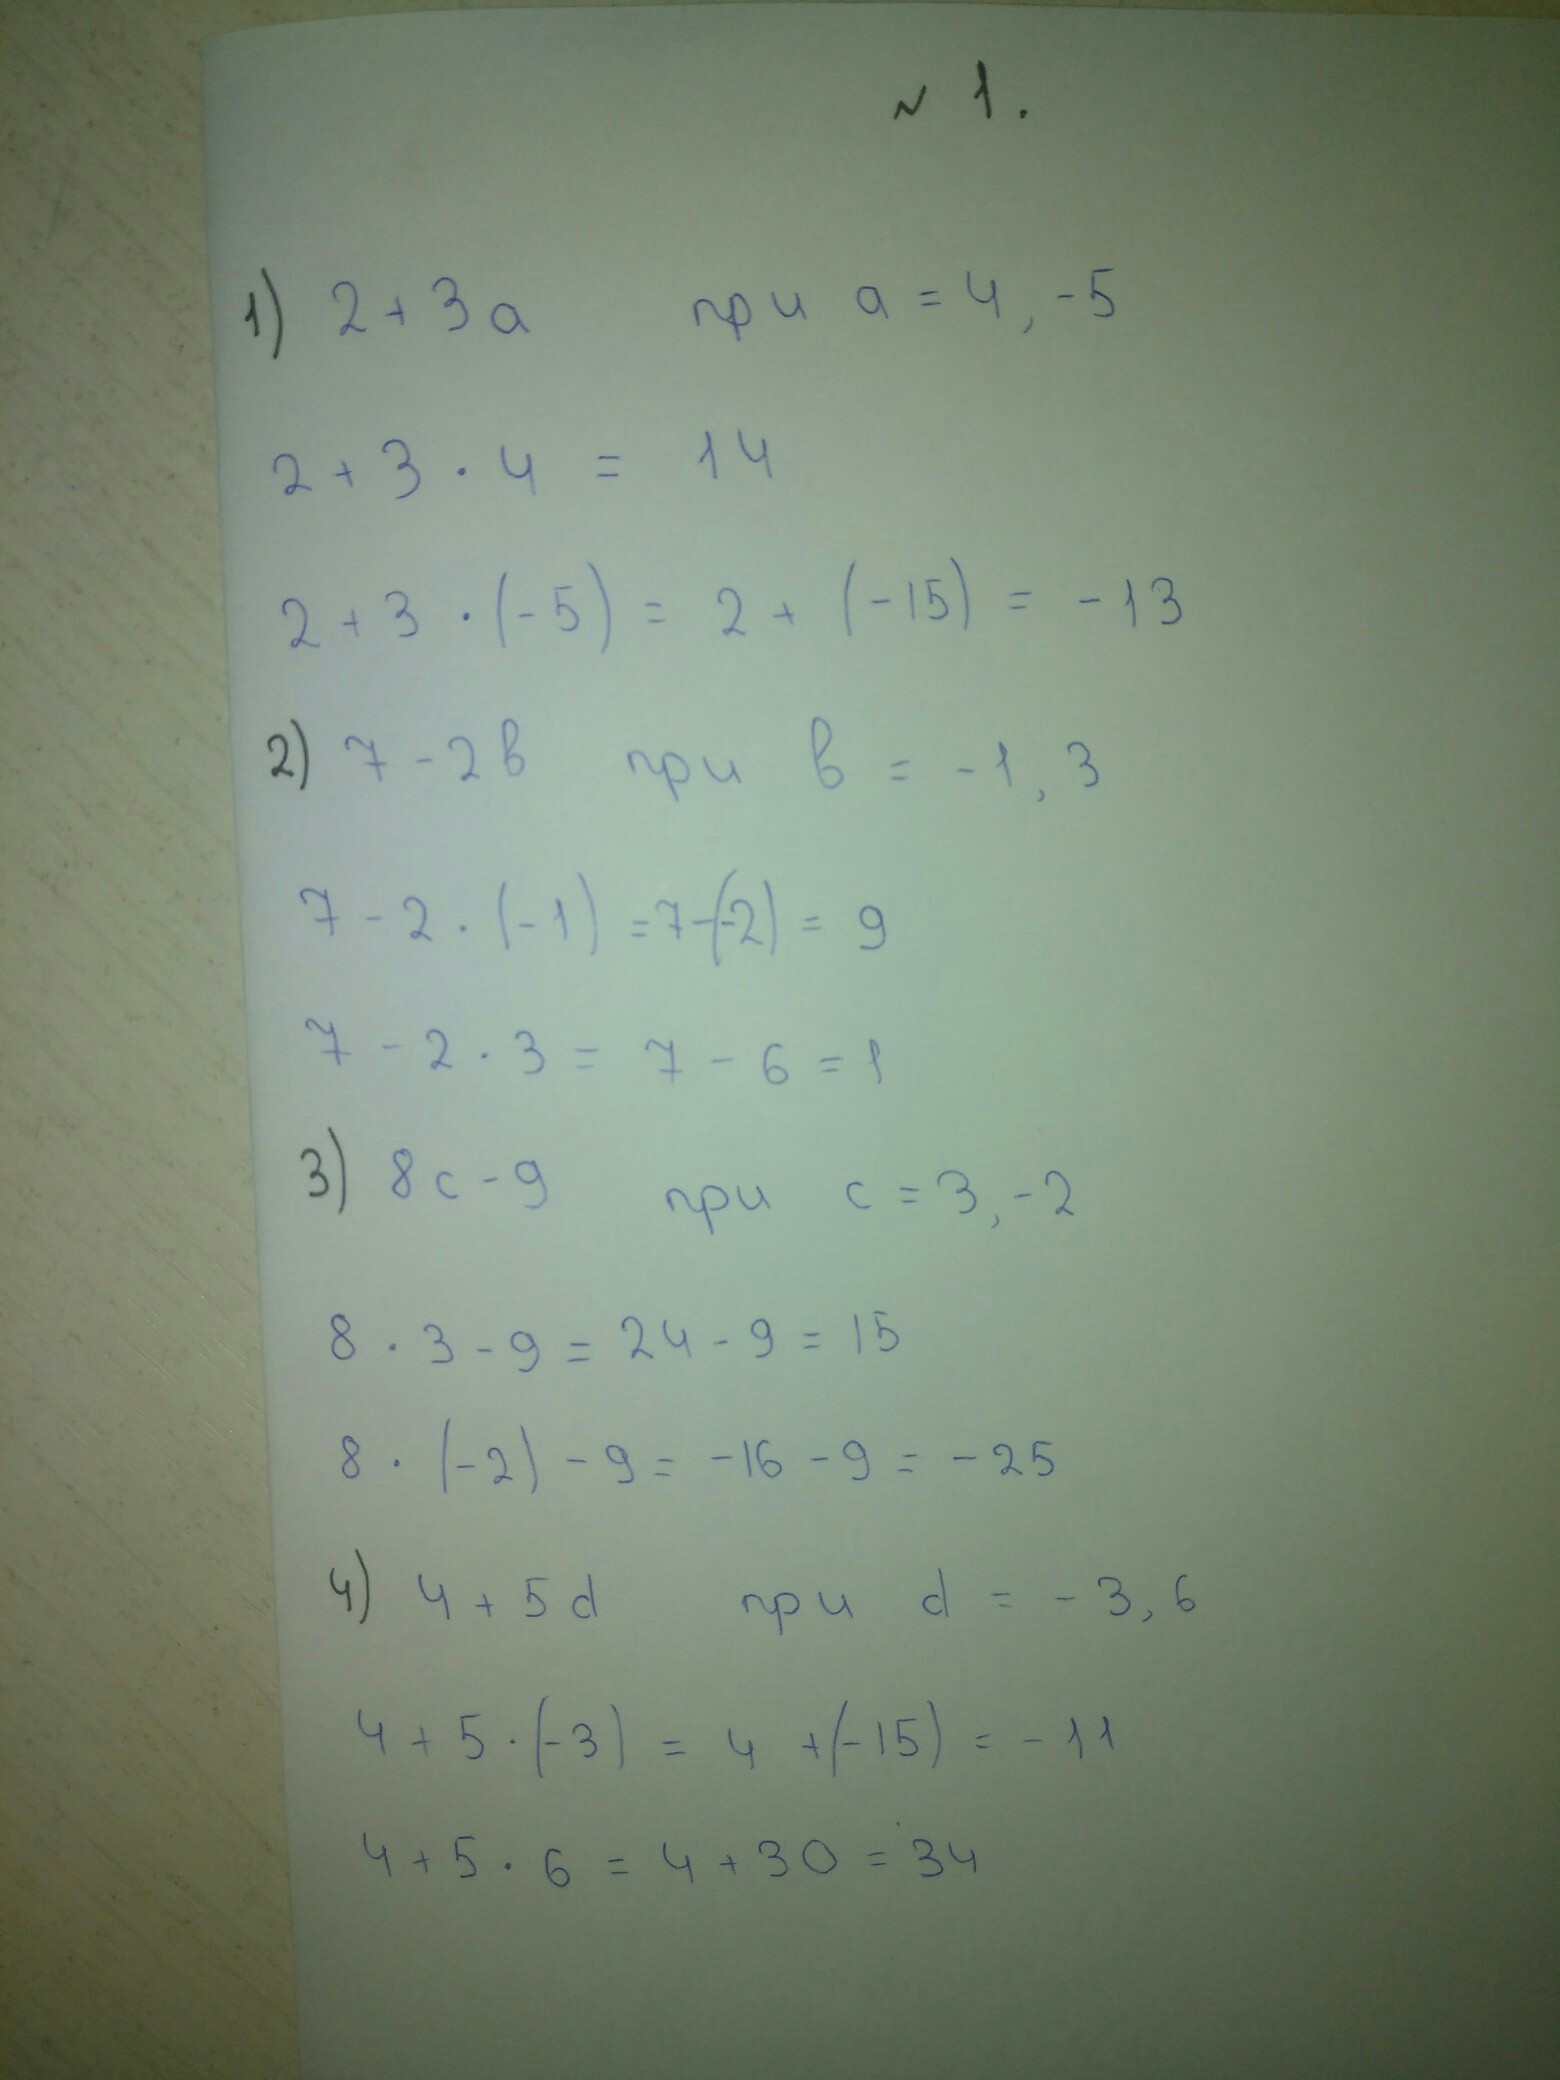 N 1.
1) 2+3a при a = 4, -5
2 + 3 · 4 = 14
2 + 3 · (-5) = 2 + (-15) = -13
2) 7 - 2b при b = -1, 3
7 - 2 · (-1) = 7-(-2) = 9
7 - 2 · 3 = 7 - 6 = 1
3) 8c - 9 при c = 3, -2
8 · 3 - 9 = 24 - 9 = 15
8 · (-2) - 9 = -16 - 9 = -25
4) 4 + 5d при d = -3, 6
4 + 5 · (-3) = 4 + (-15) = -11
4 + 5 · 6 = 4 + 30 = 34